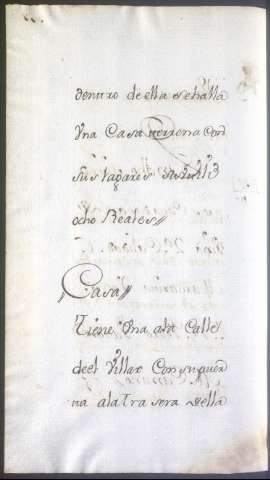 dentro de ella se halla
Una Casa terrena Con
sus lagares
ocho Reales//
Casa//
Tiene Una ala Calle
de el Villar Con su güer
ta ala tra sera de ella